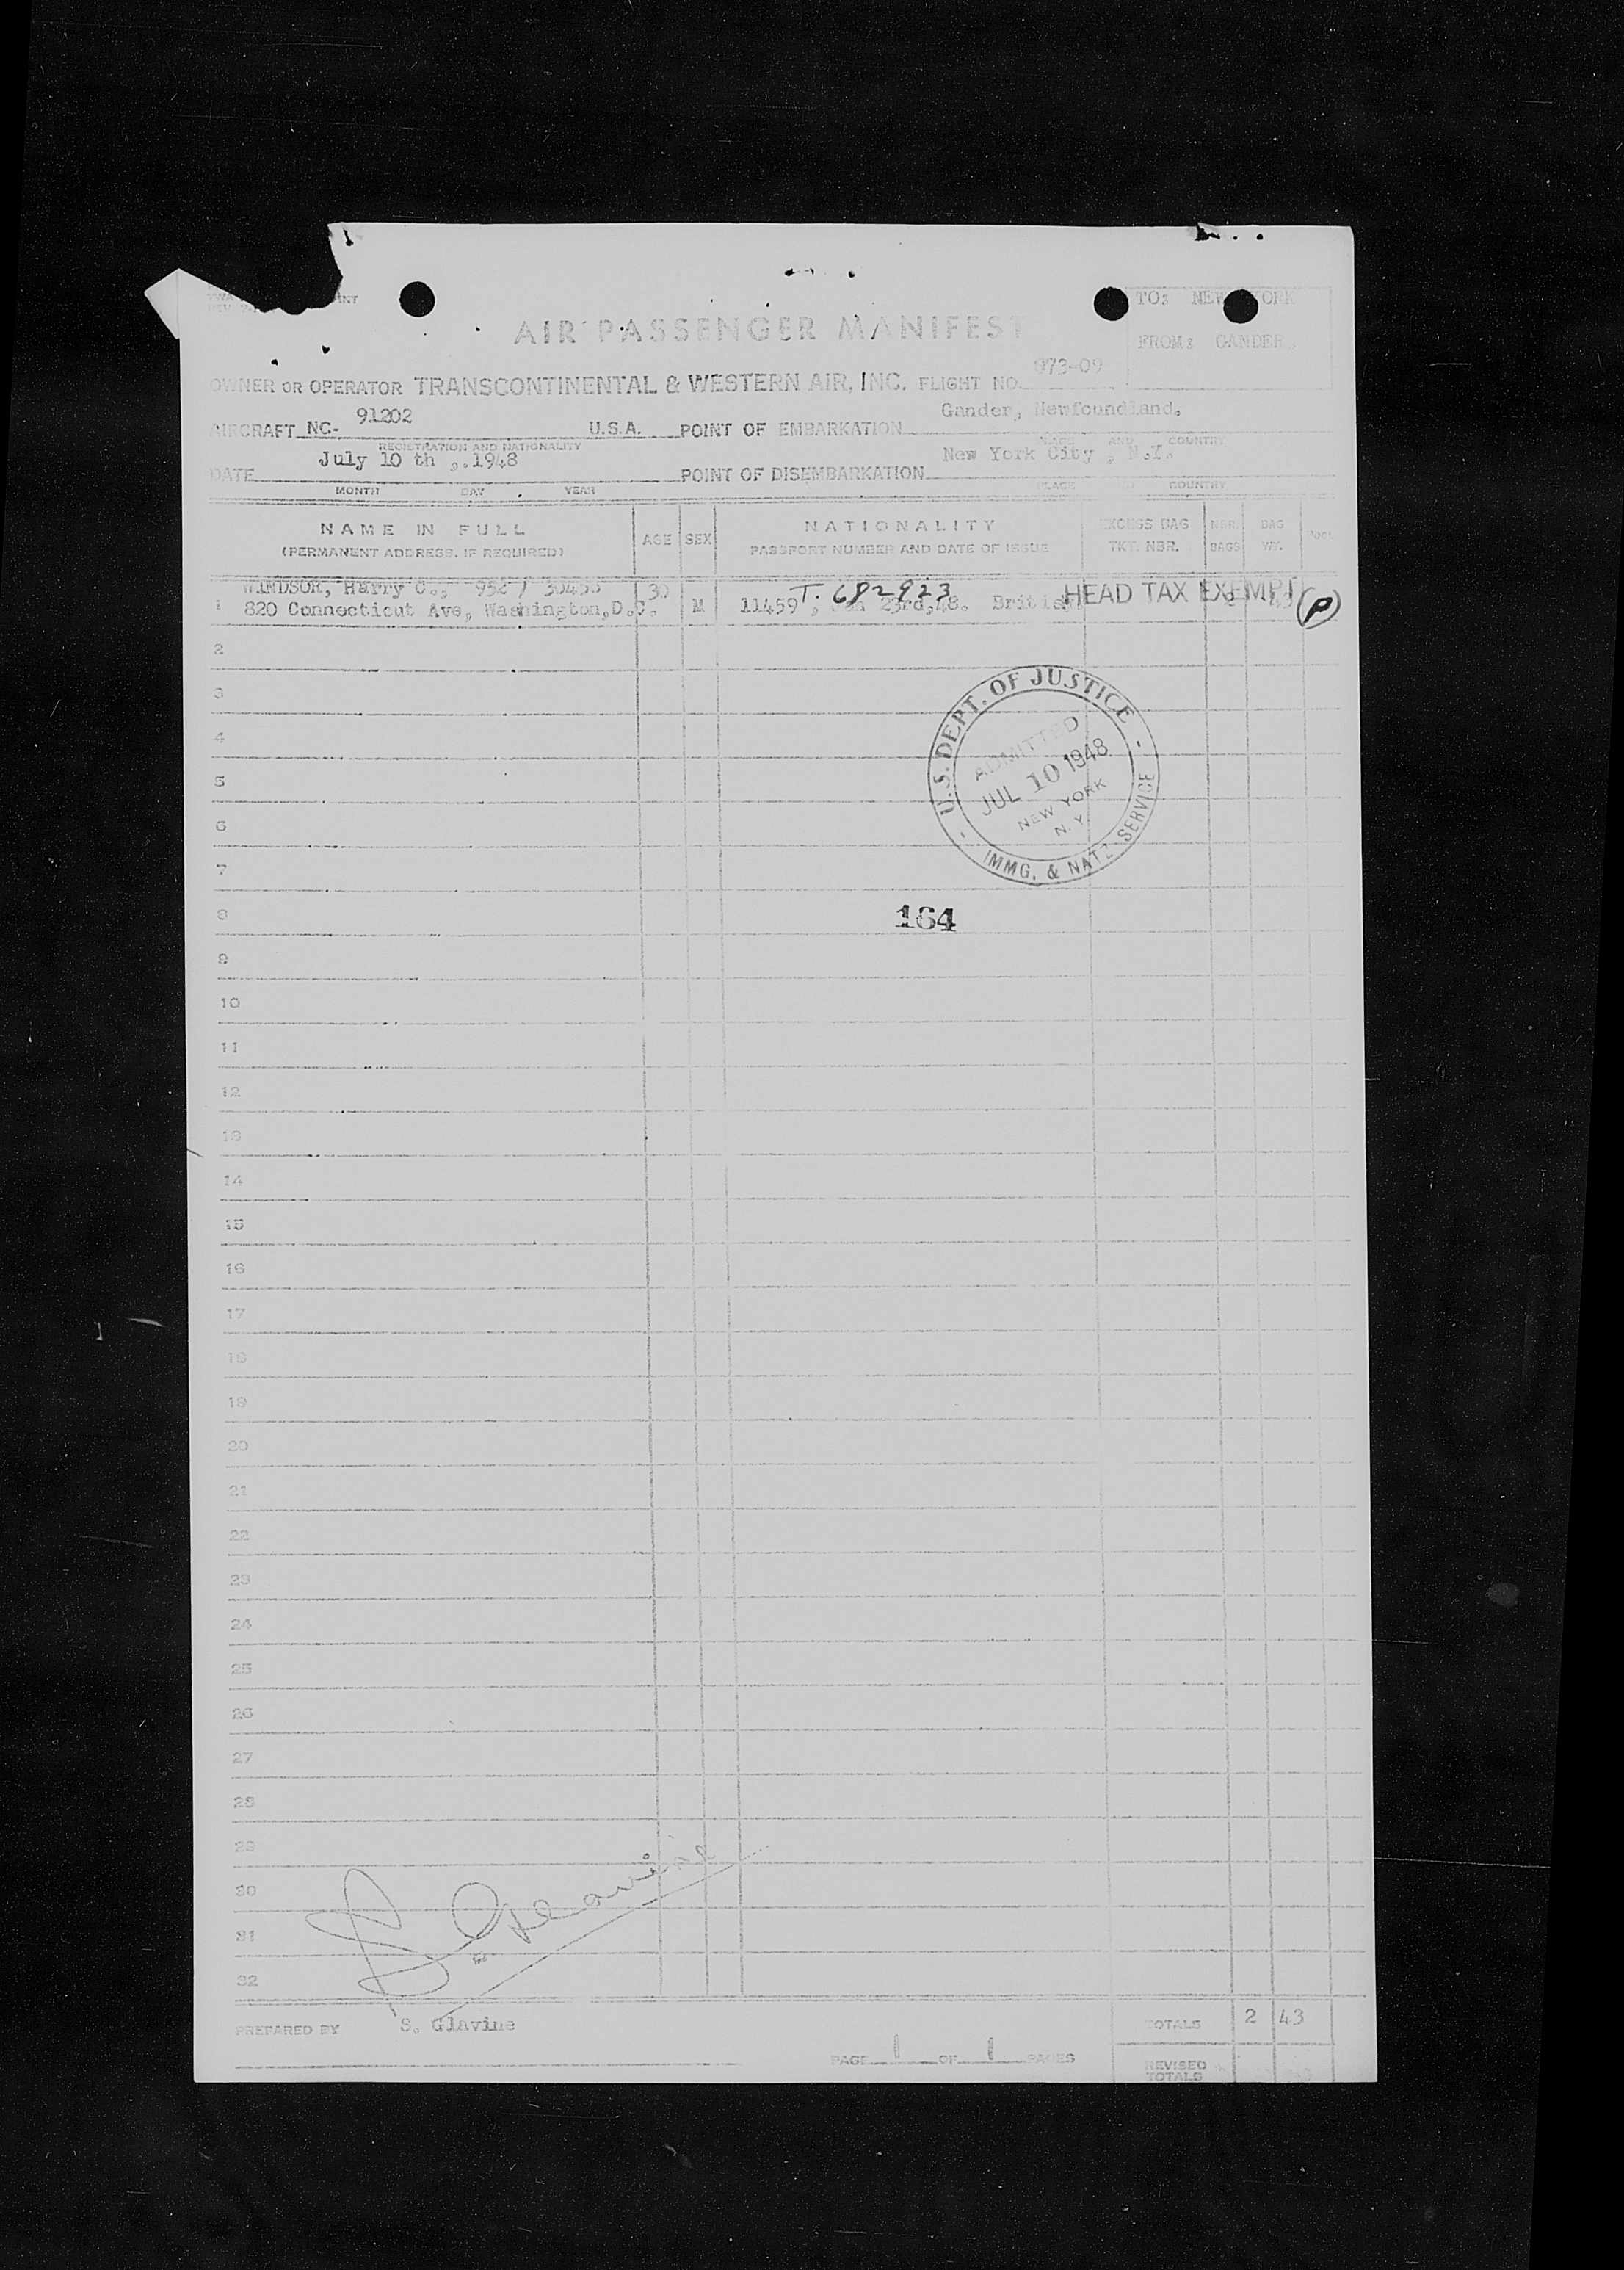 TO: NEW YORK
AIR PASSENGER MANIFEST
FROM: GANDER.
OWNER OR OPERATOR TRANSCONTINENTAL & WESTERN AIR, INC. FLIGHT NO. 973-09
AIRCRAFT NC- 91202 U.S.A. POINT OF EMBARKATION Gander, Newfoundland.
REGISTRATION AND NATIONALITY PLACE AND COUNTRY
DATE July 10 th ,.1948 POINT OF DISEMBARKATION New York City , N.Y.
MONTH DAY YEAR PLACE COUNTRY
NAME IN FULL AGE SEX NATIONALITY EXCESS BAG NBR. BAG
(PERMANENT ADDRESS, IF REQUIRED) PASSPORT NUMBER AND DATE OF ISSUE TKT. NBR. BAGS WT.
WINDSOR, Harry C., 952 / 30 T. 682923 HEAD TAX EXEMPT
1 820 Connecticut Ave, Washington,D.C. M 11459 , Jan 23rd,48. British (P)
2
3
4
5
6
7
8
9
10
11
12
13
14
15
16
17
18
19
20
21
22
23
24
25
26
27
28
29
30
31
32
U.S. DEPT. OF JUSTICE
ADMITTED
JUL 10 1948
NEW YORK
N.Y.
IMMG. & NATZ. SERVICE
164
S. Glavine
PREPARED BY S. Glavine
TOTALS 2 43
PAGE 1 OF 1 PAGES
REVISED
TOTALS